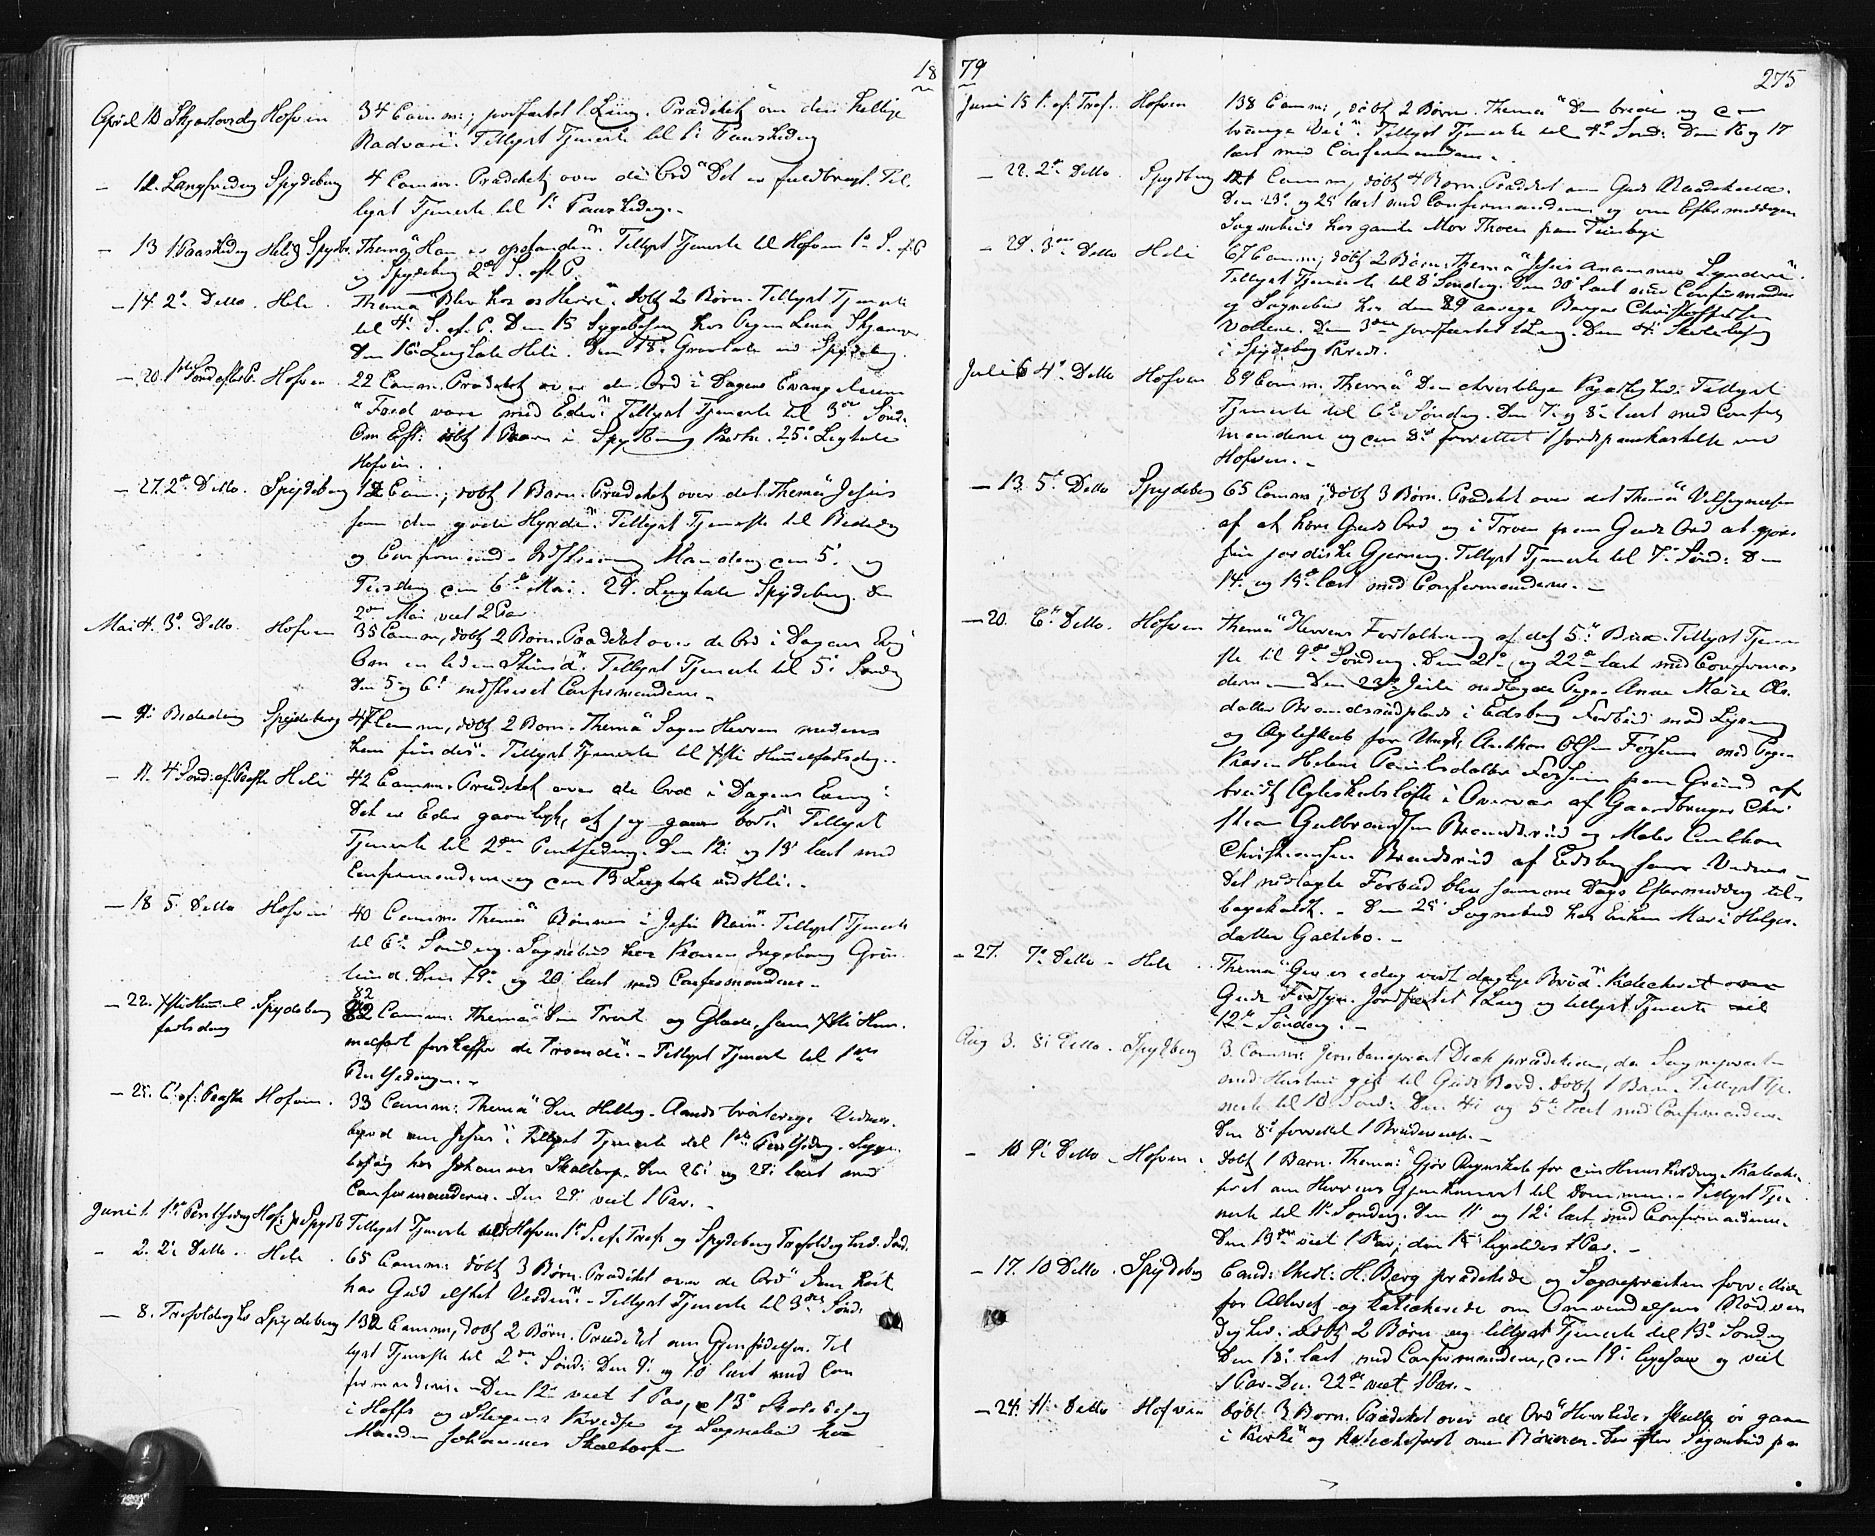 18
April 10 Skjærtorsdag Hofvin 34 Comm:, jordfæstet 1 Liig. Prædiket om den hellige
Nadvare". Tillyst Tjeneste til 1ste Paaskedag
— 11. Langfredag Spydeberg 4 Comm. Prædiket over de Ord "Det er fuldbragt. Til
lyst Tjeneste til 1ste Paaskedag.-
— 13 1 Paaskedag Heli & Spydb. Thema "Han er opstanden". Tillyst Tjeneste til Hofvin 1ste S. ef. P
og Spydeberg 2den S. eft P.
— 14. 2den Detto. Heli. Thema "Bliv hos os Herre". Døbt 2 Børn. Tillyst Tjeneste
til 4de S. ef. P. Den 15 Sygebesøg hos
Den 16de Liigtale Heli. Den 18de Gravtale ved Spydeberg.
— 20. 1ste Sønd. efter P. Hofvin. 22 Comm. Prædiket over de Ord i Dagens Evangelium
"Fred være med Eder". Tillyst Tjeneste til 3die Sønd.
Om Eft: døbt 1 Barn i Spydeberg Kirke. 25de Liigtale
Hofvin.
— 27. 2den Detto. Spydeberg 12 Com., døbt 1 Barn. Prædiket over det Thema "Jesus
som den gode Hyrde". Tillyst Tjeneste til Bededag
og Confirmand- Indskrivning Mandag den 5. og
Tirsdag den 6te Mai. 29. Liigtale Spydeberg. D.
2den Mai viet 2 Par
Mai 4. 3die Detto. Hofvin 35 Comm, døbt 2 Børn. Prædiket over de Ord i Dagens Evg
"Om en liden Stund". Tillyst Tjeneste til 5te Søndag
Den 5 og 6te indskrevet Confirmanderne.-
— 9. Bededag Spydeberg 47 Comm, døbt 2 Børn. Thema "Søger Herren medens
han findes". Tillyst Tjeneste til Xsti Himmelfartsdag.-
— 11. 4 Sønd. ef. Paaske Heli 42 Comm. Prædiket over de Ord i Dagens Evang:
"Det er Eder gavnligt, at jeg gaaer bort". Tillyst
Tjeneste til 2den Pintsedag. Den 12te og 13de læst med
Confirmanderne og den 13 Liigtale ved Heli.-
— 18 5 Detto Hofvin 40 Comm. Thema "Bønnen i Jesu Navn". Tillyst Tjeneste
til 6te Søndag. Sognebud hos Konen Ingeborg Grøn
lund. Den 19de og 20 læst med Confirmanderne.-
82
— 22. Xsti Himmel Spydeberg Comm: Thema "Den Trøst og Glæde, som Xsti Him.
fartsdag
melfart forskaffer de Troende".- Tillyst Tjeneste til 1ste
Pintsedag.-
— 25. 6te ef. Paaske Hofvin. 33 Comm: Thema "Den Hellig- Aands trøsterige Vidnes.
byrd om Jesus". Tillyst Tjeneste til 1ste Pintsedag. Syge
besøg hos Johannes Skaltorp. Den 26de og 27de læst med
Confirmanderne. Den 29. viet 1 Par.-
Juni 1. 1ste Pintsedag Hof: & Spydb. Tillyst Tjeneste til Hofvin 1ste S. ef. Tref. og Spydeberg Trefoldighed. Sønd.
— 2. 2den Detto. Heli. 65 Comm: døbt 3 Børn. Prædiket over de Ord "Saa høit
har Gud elsket Verden".- Tillyst Tjeneste til 3die Sønd:
— 8. Trefoldighed Spydeberg 132 Comm, døbt 2 Børn. Prædiket om Gjenfødelsen. Til
lyst Tjeneste til 2den Sønd: Den 9. og 10 læst med Con
firmanderne.- Den 12te viet 1 Par, 13de Skolebesøg
i Hoffs og Kredse og Sognebud hos
Manden Johannes Skaltorp.-
79
275
Juni 15 1. ef. Tref. Hofvin 138 Comm:, døbt 2 Børn. Thema "Den brede og den
trange Vei". Tillyst Tjeneste til 4de Sønd: Den 16 og 17
læst med Confirmanderne.
— 22. 2den Detto. Spydeberg 121 Comm, døbt 4 Børn. Prædiket om Guds Naadekald.
Den 23de og 25 læst med Confirmanderne og om Eftermiddagen
Sognebud hos gamle Mor Thoen paa
— 29. 3die Detto Heli 67 Comm; døbt 2 Børn: Thema "Jesus annammer Syndere".
Tillyst Tjeneste til 8de Søndag. Den 30 læst med Confirmanderne
og Sognebud hos den 89 aarige Børger Christoffersen
Vollene. Den 3die jordfæstet 1 Liig. Den 4de Skolebesøg
i Spydeberg Kreds.
Juli 6 4de Detto Hofvin 89 Comm. Thema "Den christelige Kjærlighed. Tillyst
Tjeneste til 6te Søndag. Den 7. og 8de læst med Confir
manderne og den 8de forrettet 1 Jordpaakastelse ved
Hofvin.-
— 13. 5te Detto Spydeberg 65 Comm:, døbt 3 Børn. Prædiket over det Thema "Velsignelsen
af at høre Guds Ord og i Troen paa Guds Ord at gjøre
sin jordiske Gjerning. Tillyst Tjeneste til 7de Sønd: Den
14. og 15de læst med Confirmanderne.-
— 20. 6te Detto. Hofvin Thema "Herrens Fortolkning af det 5te Bud. Tillyst Tjene
ste til 9de Søndag. Den 21de og 22de læst med Confirman
derne.— Den 23de Juli nedlagde Pige Anne Marie Ols.
datter Brandsrudplads i Edsberg Forbud mod Lysning
og Ægteskab for Ungk. Anthon Olsen Fossum med Pige
Karen Helene Paulsdatter Fossum paa Grund af
brudt Ægteskabsløfte i Overvær af Gaardbruger Chri
stian Gulbrandsen Brandsrud og Maler Anthon
Christiansen Brandsrud af Edsberg som Vidner.-
Det nedlagte Forbud blev samme Dags Eftermiddag til-
bagekaldt.- Den 25 Sognebud hos Enken Mari Helges-
datter Galtebo.-
— 27. 7de Detto - Heli. Thema "Giv os i dag vort daglige Brød". Katechiseret over
Guds Forsyn. Jordfæstet 1 Liig og tillyst Tjeneste til
12te Søndag.-
Aug 3. 8de Detto - Spydeberg 3 Comm: prædikede, da Sognepræsten
med Hustru gik til Guds Bord. Døbt 1 Barn. Tillyst Tje
neste til 10. Sønd: Den 4de og 5te læst med Confirmanderne.
Den 8de forrettet 1 Brudevielse.-
— 10 9de Detto - Hofvin. Døbt 1 Barn. Thema: "Gjør Regnskab for din Huusholdning. Kateche
seret om Herrens Gjenkomst til Dommen.- Tillyst Tje
neste til 11te Søndag. Den 11 og 12te læst med Confirmanderne.
Den 13de viet 1 Par, den 15 ligeledes 1 Par.-
— 17. 10 Detto. Spydeberg Cand: theol: H. Berg prædikede og Sognepræsten forrettede
for Alteret og Katechiserede om Omvendelsens Nødven
dighed. Døbt 2 Børn og tillyst Tjeneste til 13de Søndag
Den 18de læst med Confirmanderne, den 19de ligesaa og viet
1 Par. Den 22de viet 1 Par.-
— 24. 11. Detto Hofvin Døbt 3 Børn. Prædiket over de Ord "Hvorledes skulle vi gaae
i Kirke" og Katechiseret om Bønnen. Derefter Sognebud paa